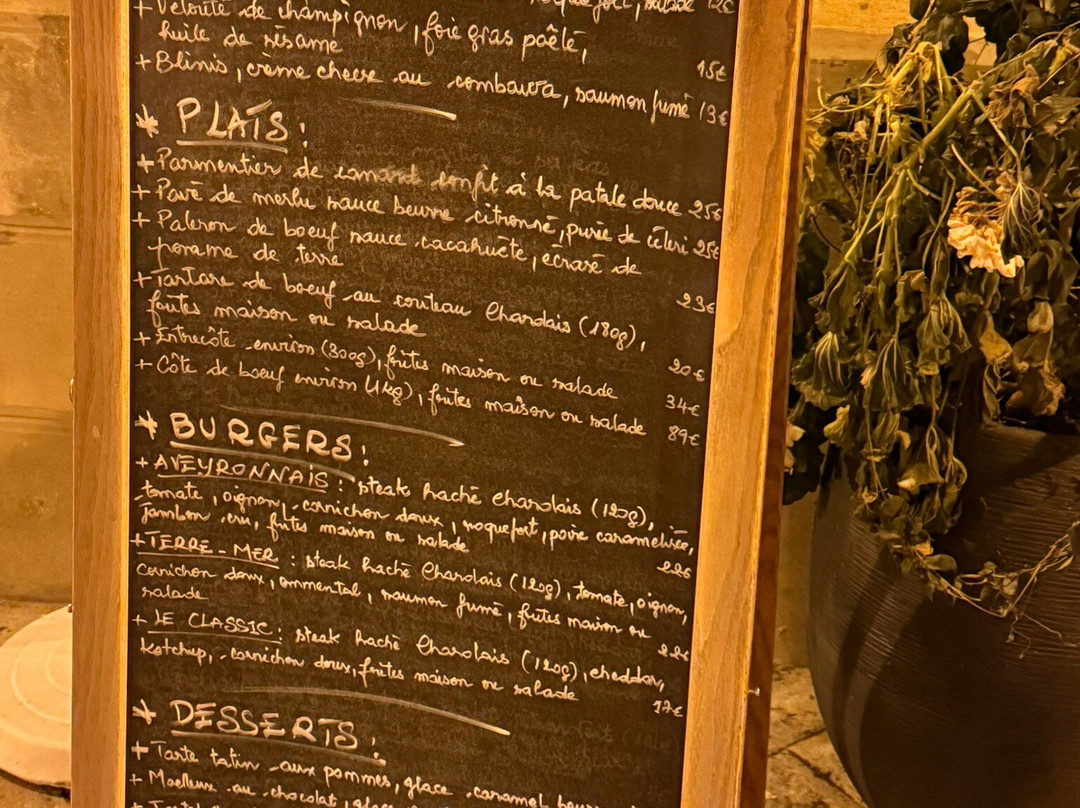 salade 12€
+ Velouté de champignon, foie gras poêlé,
huile de sésame 15€
+ Blinis, crème cheese au combawa, saumon fumé 13€
* PLATS :
+ Parmentier de canard confit à la patate douce 25€
+ Pavé de merlu sauce beurre citronné, purée de céleri 25€
+ Paleron de boeuf sauce cacahuète, écrasé de
pomme de terre 23€
+ Tartare de boeuf au couteau Charolais (180g),
frites maison ou salade 20€
+ Entrecôte environ (300g), frites maison ou salade 34€
+ Côte de boeuf environ (1kg), frites maison ou salade 89€
* BURGERS :
+ AVEYRONNAIS : steak haché Charolais (120g),
tomate, oignon, cornichon doux, roquefort, poire caramélisée,
jambon cru, frites maison ou salade 22€
+ TERRE-MER : steak haché Charolais (120g), tomate, oignon,
cornichon doux, emmental, saumon fumé, frites maison ou
salade 22€
+ LE CLASSIC : steak haché Charolais (120g), cheddar,
ketchup, cornichon doux, frites maison ou salade 17€
* DESSERTS :
+ Tarte tatin aux pommes, glace caramel
+ Moelleux au chocolat, glace